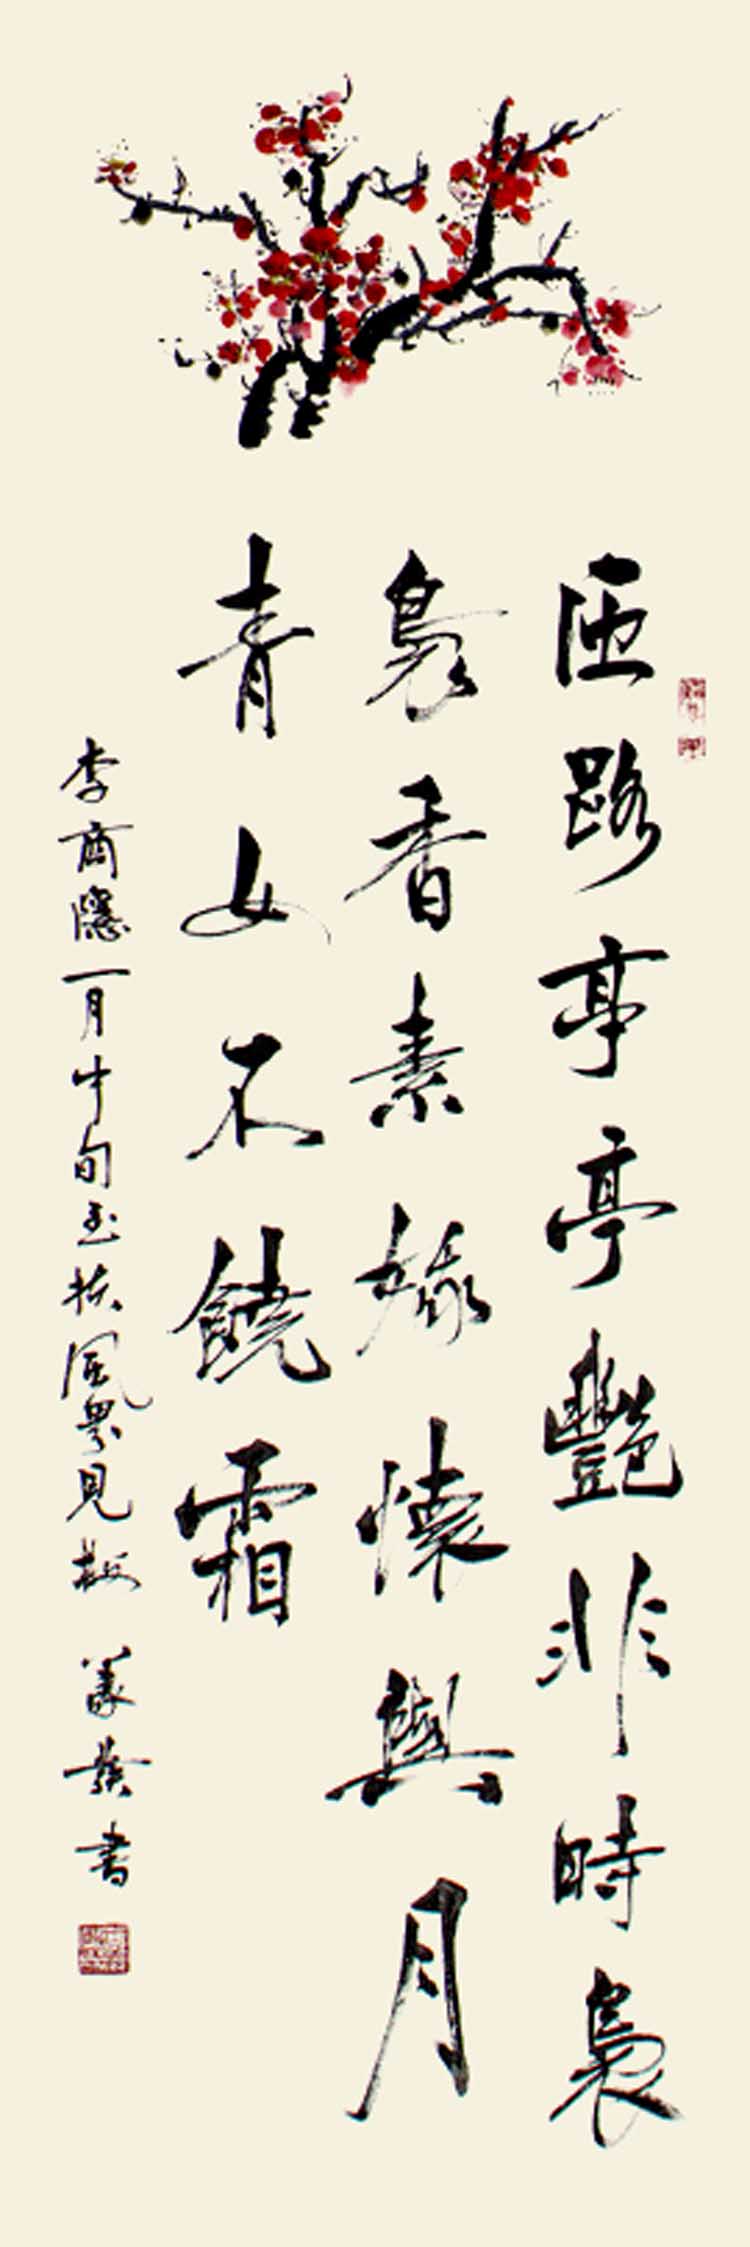 匝路亭亭艷非時裊
裊香素娥懷與月
青女不饒霜
李商隱一月中旬至扶風界見梅 書